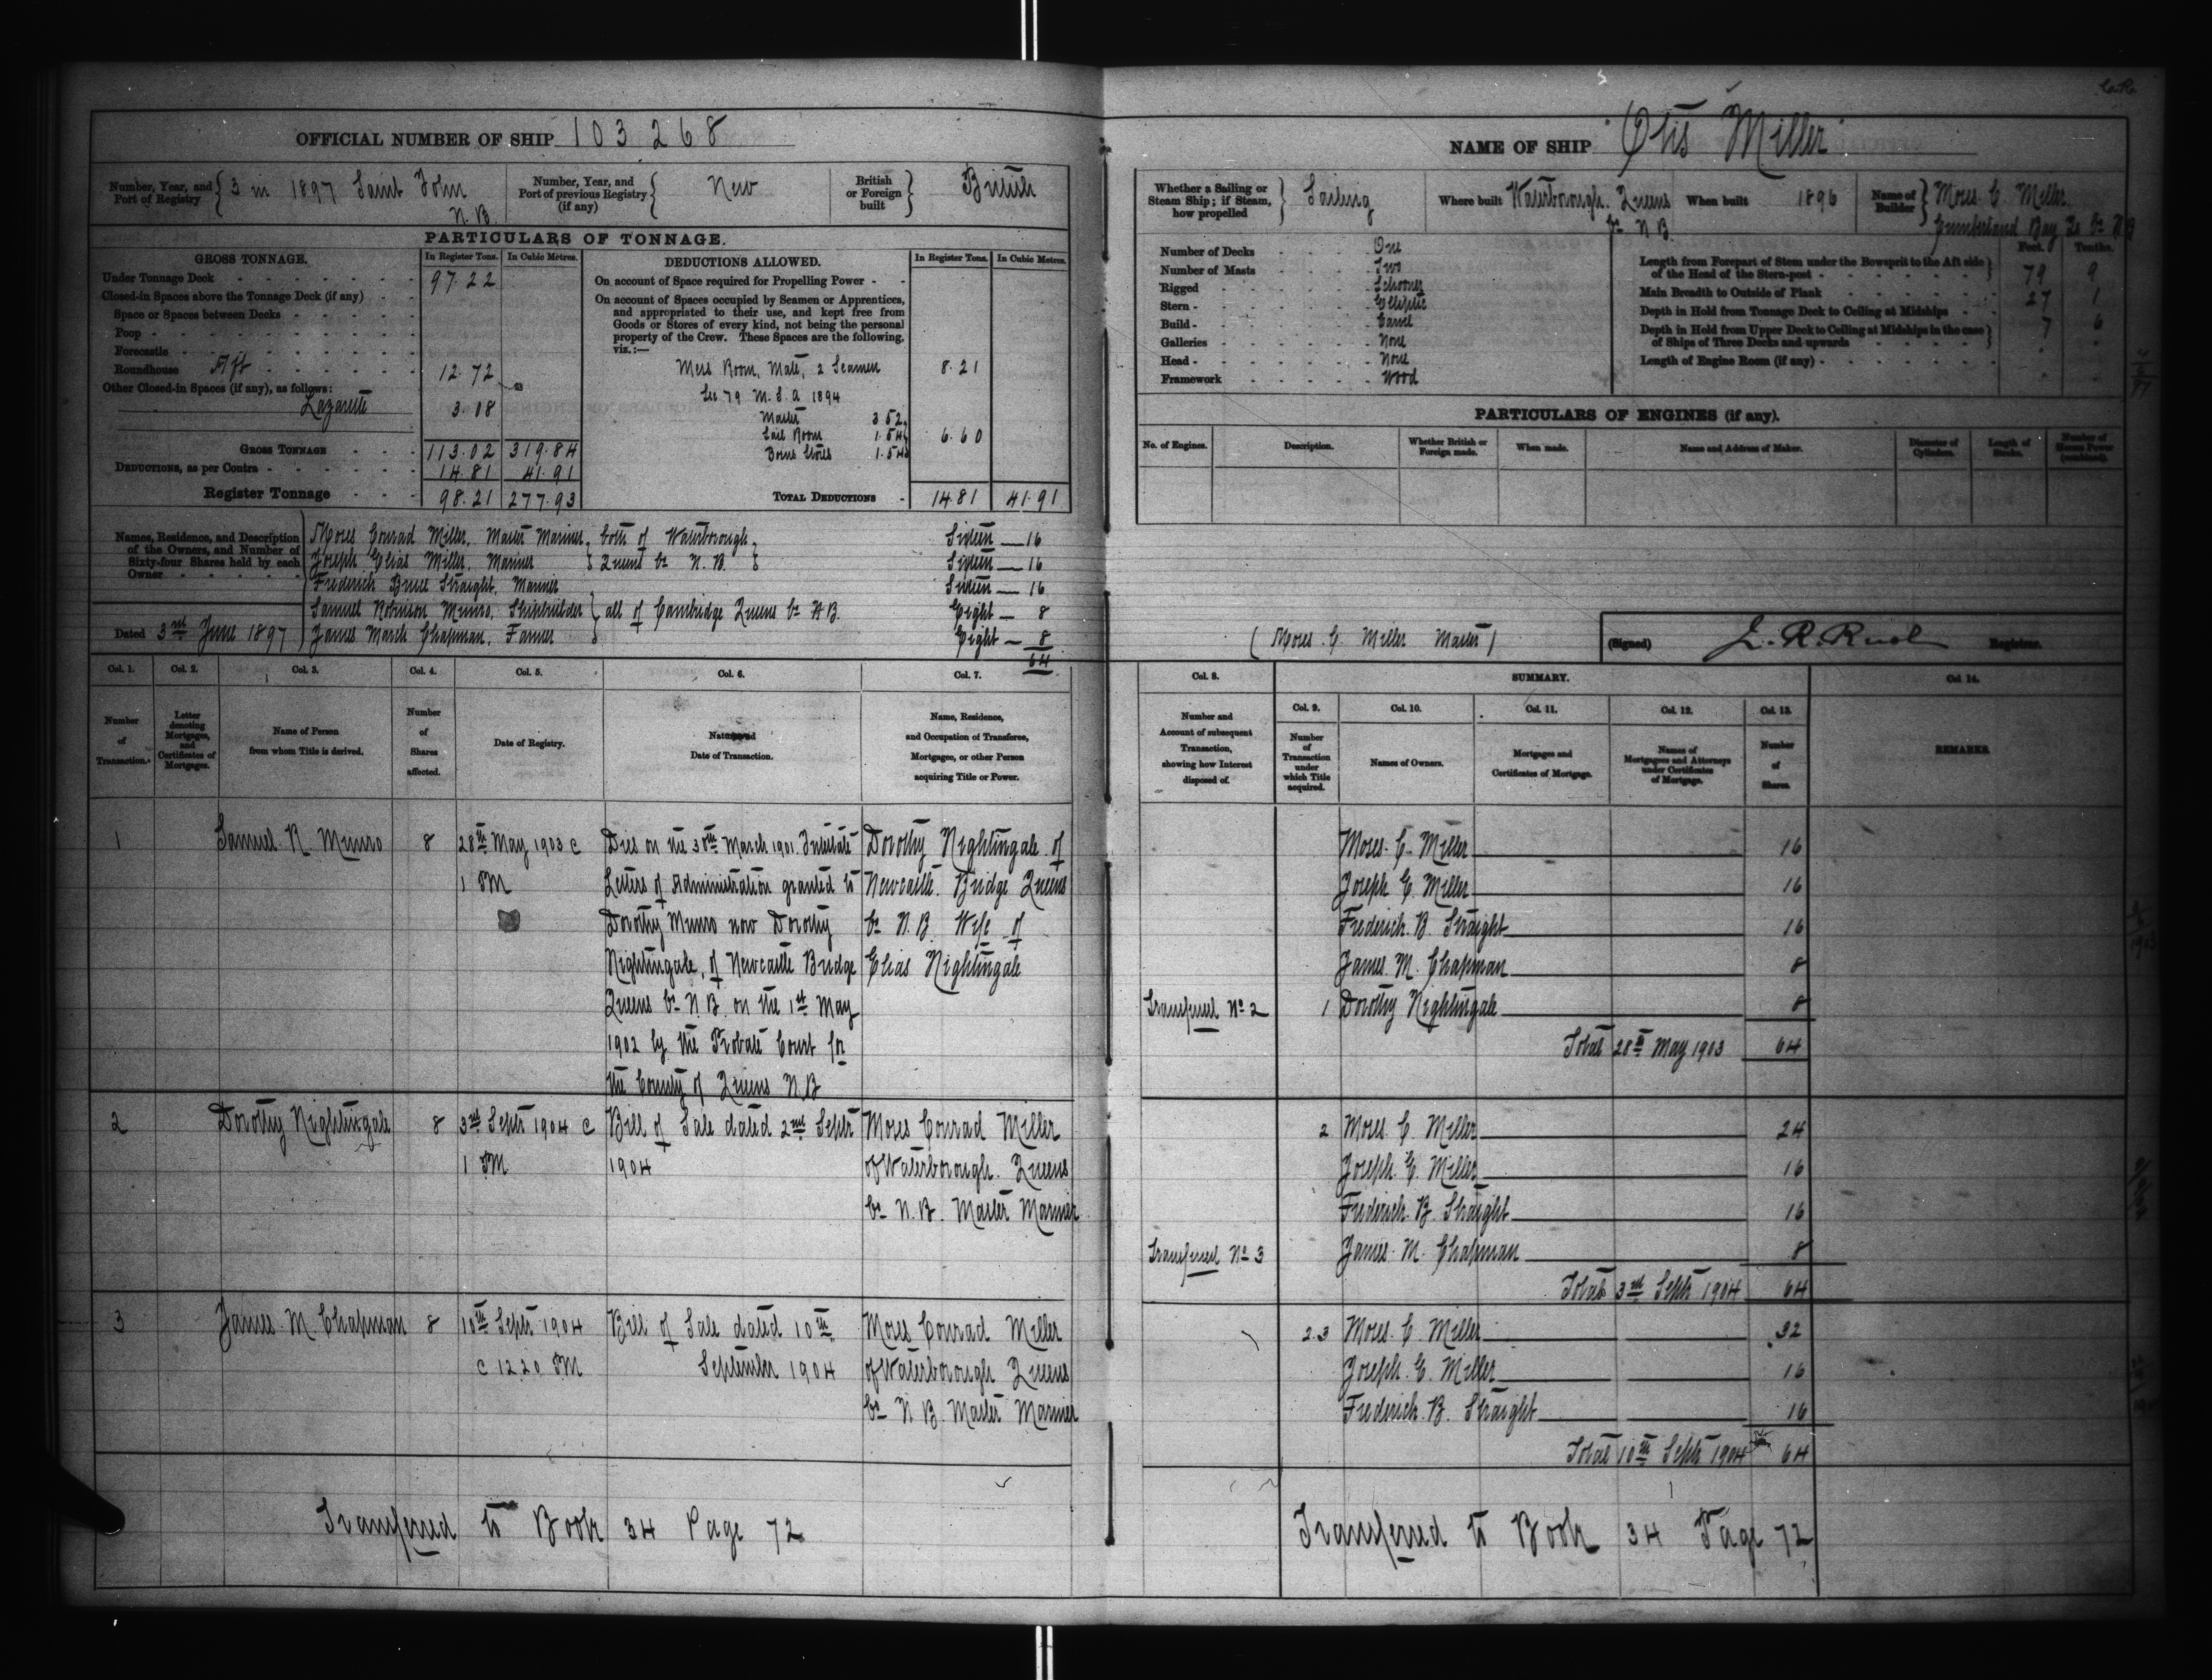 OFFICIAL NUMBER OF SHIP 103268
Number, Year, and Port of Registry { 3 in 1897 Saint John N.B.
Number, Year, and Port of previous Registry (if any) { New
British or Foreign built } British
PARTICULARS OF TONNAGE.
GROSS TONNAGE.
In Register Tons. In Cubic Metres.
Under Tonnage Deck 97.22
Closed-in Spaces above the Tonnage Deck (if any)
Space or Spaces between Decks
Poop
Forecastle
Roundhouse Aft 12.72
Other Closed-in Spaces (if any), as follows:
Lazarette 3.08
GROSS TONNAGE 113.02 319.84
DEDUCTIONS, as per Contra 14.81 41.91
Register Tonnage 98.21 277.93
DEDUCTIONS ALLOWED.
In Register Tons. In Cubic Metres.
On account of Space required for Propelling Power
On account of Spaces occupied by Seamen or Apprentices,
and appropriated to their use, and kept free from
Goods or Stores of every kind, not being the personal
property of the Crew. These Spaces are the following,
viz.:—
Mess Room, Mate, 2 Seamen 8.21
Sec 79 M.S.A 1894
Master 3.52
Sail Room 1.54 6.60
Boins Stores 1.54
TOTAL DEDUCTIONS 14.81 41.91
Names, Residence, and Description
of the Owners, and Number of
Sixty-four Shares held by each
Owner
Moses Conrad Miller, Master Mariner } both of Waterborough Sixteen — 16
Joseph Elias Miller, Mariner } Queens Co N.B. } Sixteen — 16
Frederick Bruce Straight, Mariner Sixteen — 16
Samuel Robinson Munro, Shipbuilder } all of Cambridge Queens Co N.B. Eight — 8
James March Chapman, Farmer Eight — 8
64
Dated 3rd June 1897
Col. 1. Col. 2. Col. 3. Col. 4. Col. 5. Col. 6. Col. 7.
Number of Transaction.
Letter denoting Mortgages, and Certificates of Mortgages.
Name of Person from whom Title is derived.
Number of Shares affected.
Date of Registry.
Nature and Date of Transaction.
Name, Residence, and Occupation of Transferee, Mortgagee, or other Person acquiring Title or Power.
1 Samuel R. Munro 8 28th May 1903 @ Dies on the 30th March 1901. Intestate Dorothy Nightingale of
1 PM Letters of Administration granted to Newcastle Bridge Queens
Dorothy Munro now Dorothy Co N.B. Wife of
Nightingale, of Newcastle Bridge Elias Nightingale
Queens Co N.B. on the 1st May
1902 by the Probate Court for
the County of Queens N.B
2 Dorothy Nightingale 8 3rd Septr 1904 @ Bill of Sale dated 2nd Septr Moses Conrad Miller
1 PM 1904 of Waterborough. Queens
Co N.B. Master Mariner
3 James M Chapman 8 10th Septr 1904 Bill of Sale dated 10th Moses Conrad Miller
@ 12.20 PM September 1904 of Waterborough Queens
Co N B. Master Mariner
Transferred to Book 34 Page 72
NAME OF SHIP "Otis Miller"
Whether a Sailing or Steam Ship; if Steam, how propelled } Sailing
Where built Waterborough. Queens Co N B.
When built 1896
Name of Builder } Moses C. Miller.
Cumberland Bay Qs Co N B
Number of Decks One
Number of Masts Two
Rigged Schooner
Stern Elliptic
Build Carvel
Galleries None
Head None
Framework Wood
Feet. Tenths.
Length from Forepart of Stem under the Bowsprit to the Aft side
of the Head of the Stern-post 79 9
Main Breadth to Outside of Plank 27 1
Depth in Hold from Tonnage Deck to Ceiling at Midships 7 6
Depth in Hold from Upper Deck to Ceiling at Midships in the case
of Ships of Three Decks and upwards
Length of Engine Room (if any)
PARTICULARS OF ENGINES (if any).
No. of Engines.
Description.
Whether British or Foreign made.
When made.
Name and Address of Maker.
Diameter of Cylinders.
Length of Stroke.
Number of Horses Power (combined).
(Moses C. Miller Master)
(Signed)
Registrar.
Col. 8. SUMMARY. Col. 14.
Col. 9. Col. 10. Col. 11. Col. 12. Col. 13.
Number and Account of subsequent Transaction, showing how Interest disposed of.
Number of Transaction under which Title acquired.
Names of Owners.
Mortgages and Certificates of Mortgage.
Names of Mortgagees and Attorneys under Certificates of Mortgage.
Number of Shares.
REMARKS.
Moses. C. Miller 16
Joseph E. Miller 16
Frederick. B. Straight 16
James. M. Chapman 8
Transferred No 2 1 Dorothy Nightingale 8
Total 28th May 1903 64
2 Moses. C. Miller 24
Joseph. E. Miller 16
Frederick. B. Straight 16
Transferred No 3 James. M. Chapman 8
Total 3rd Septr 1904 64
2.3 Moses. C. Miller 32
Joseph. E. Miller 16
Frederick. B. Straight 16
Total 10th Septr 1904 64
Transferred to Book 34 Page 72